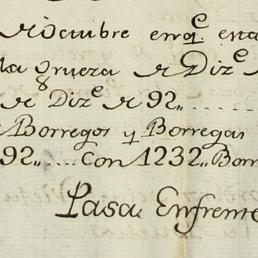 de Octubre en q.e en
la grueza de Diz.e
de Diz.e de 92,,......
Borregos y Borregas
92,,....Con 1232,,Borr
Pasa Enfrente